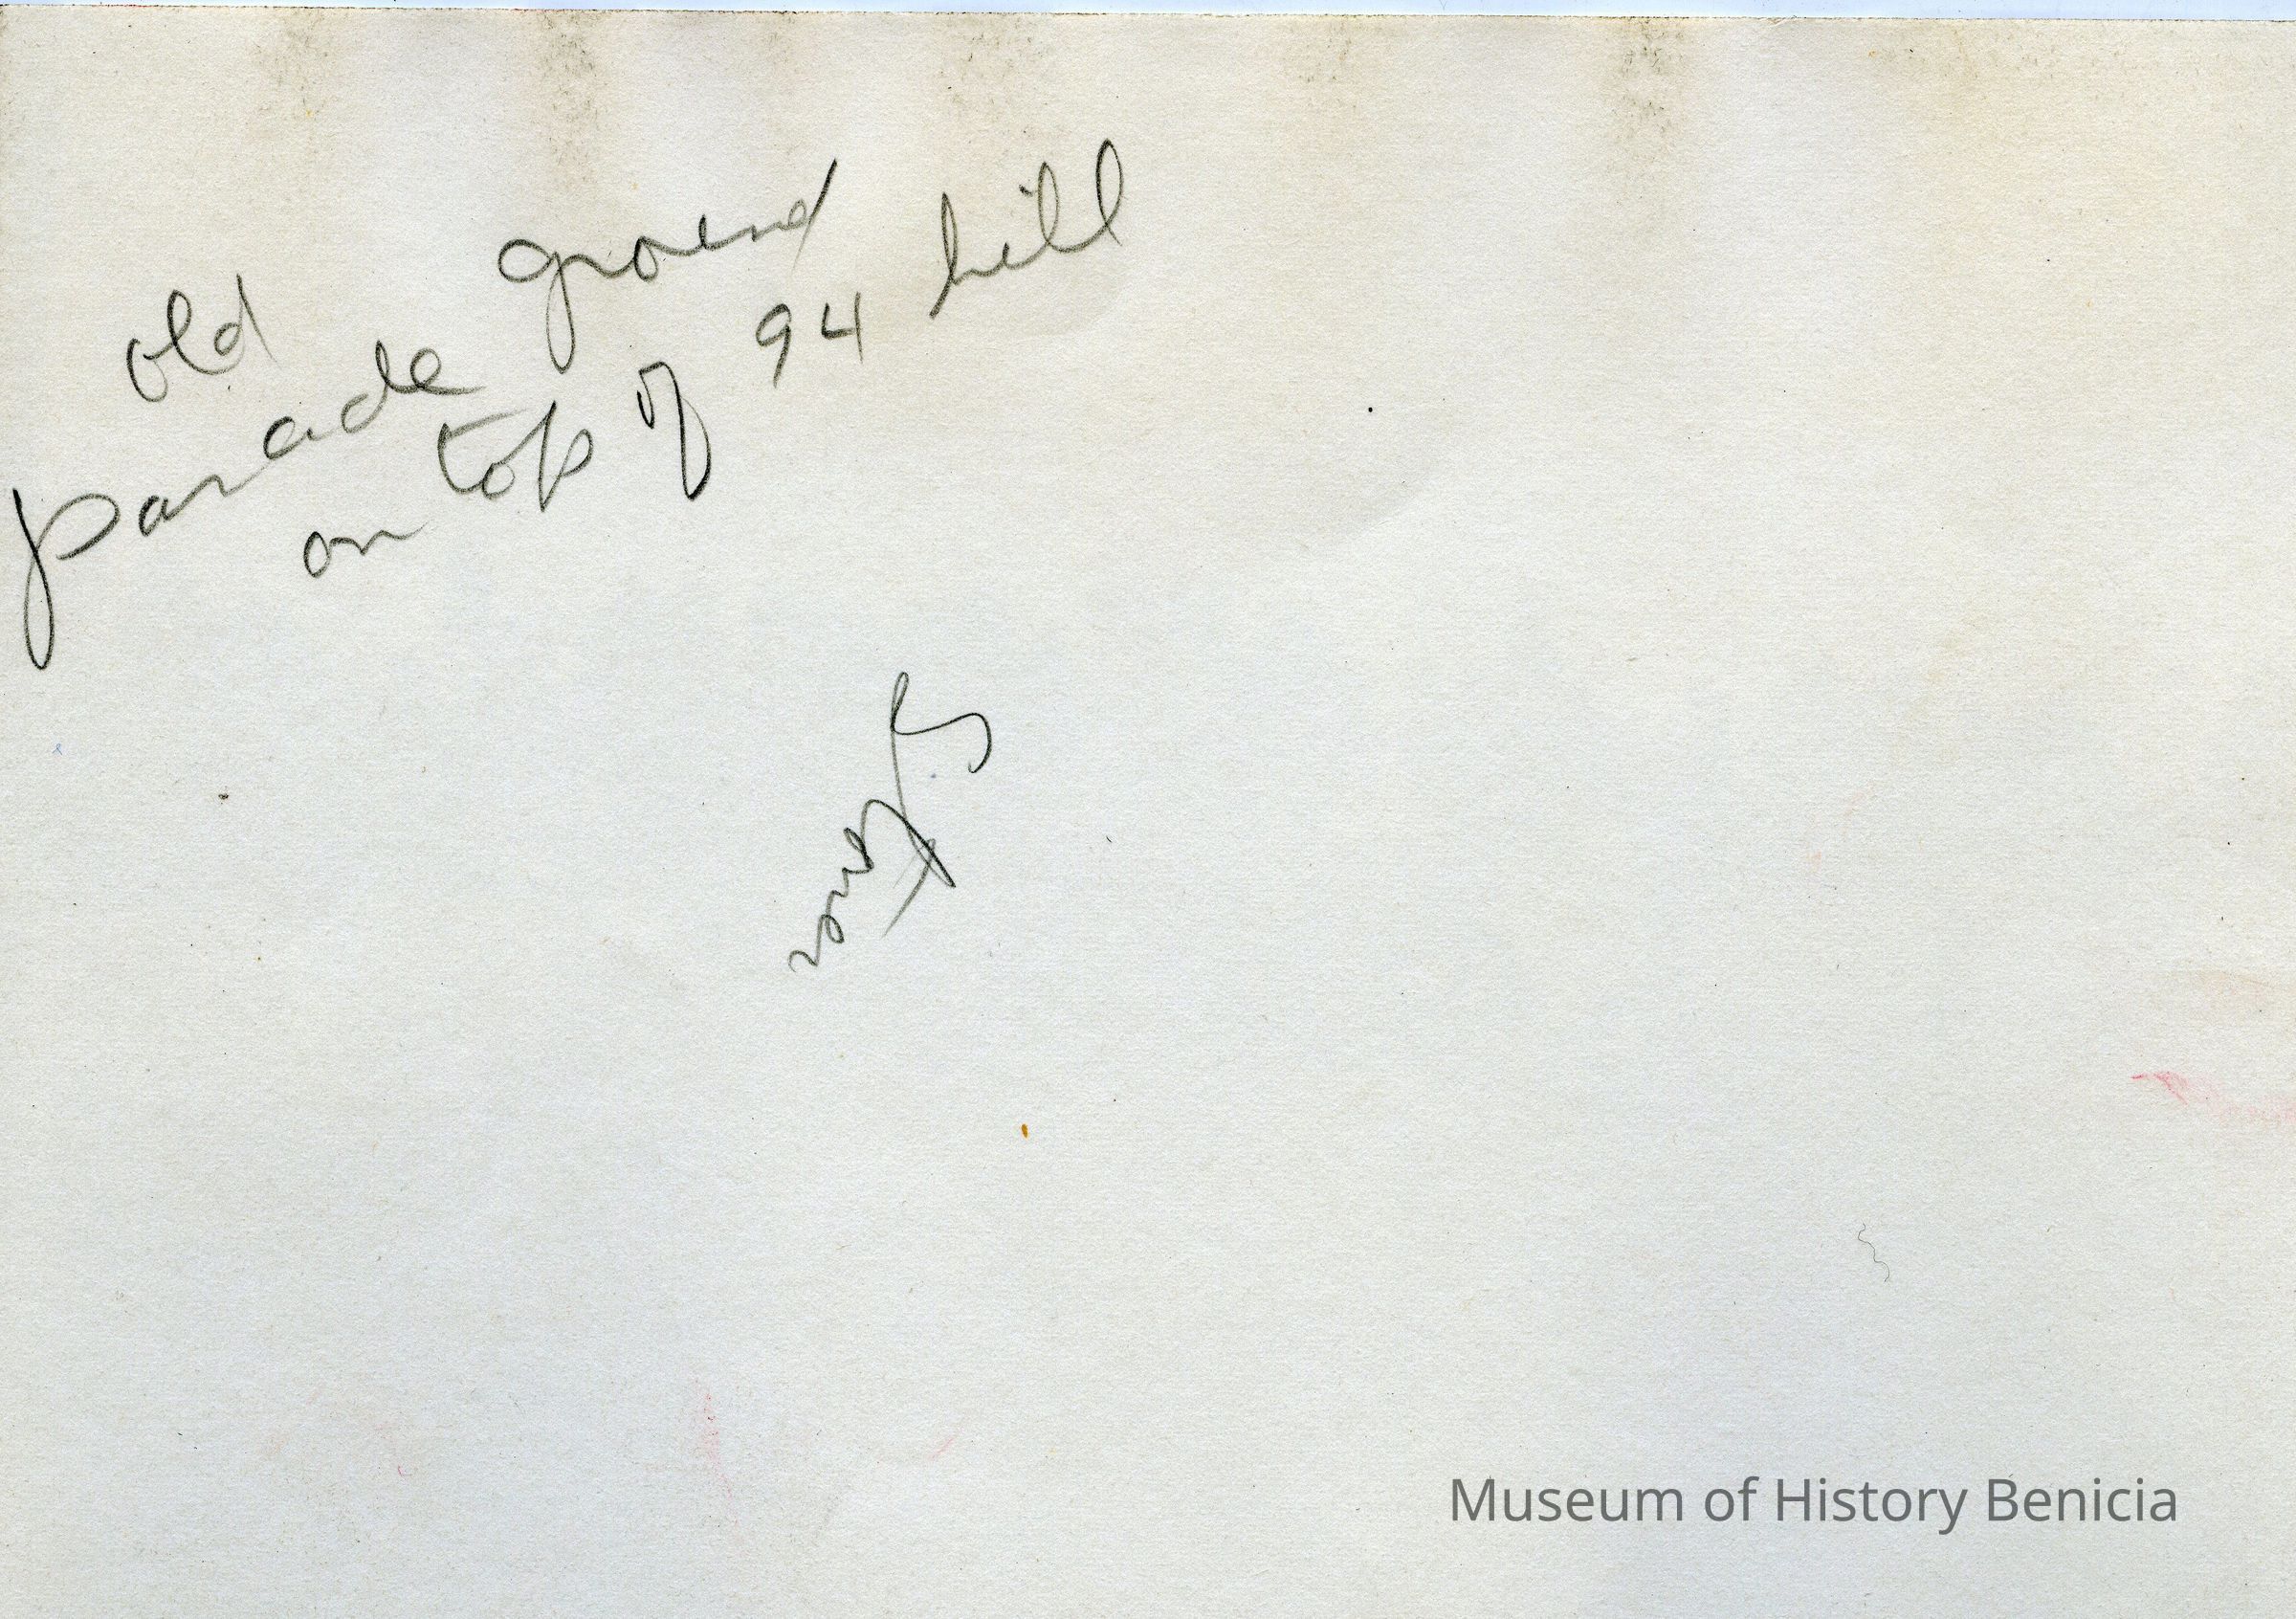 old
parade ground
on top of 94 hill
Museum of History Benicia